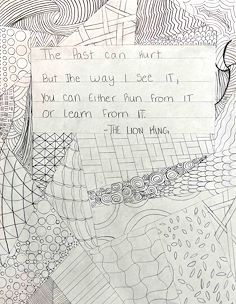 The Past can hurt.
But The way I see IT,
You can Either Run from IT
or Learn from IT.
-THE LION KING